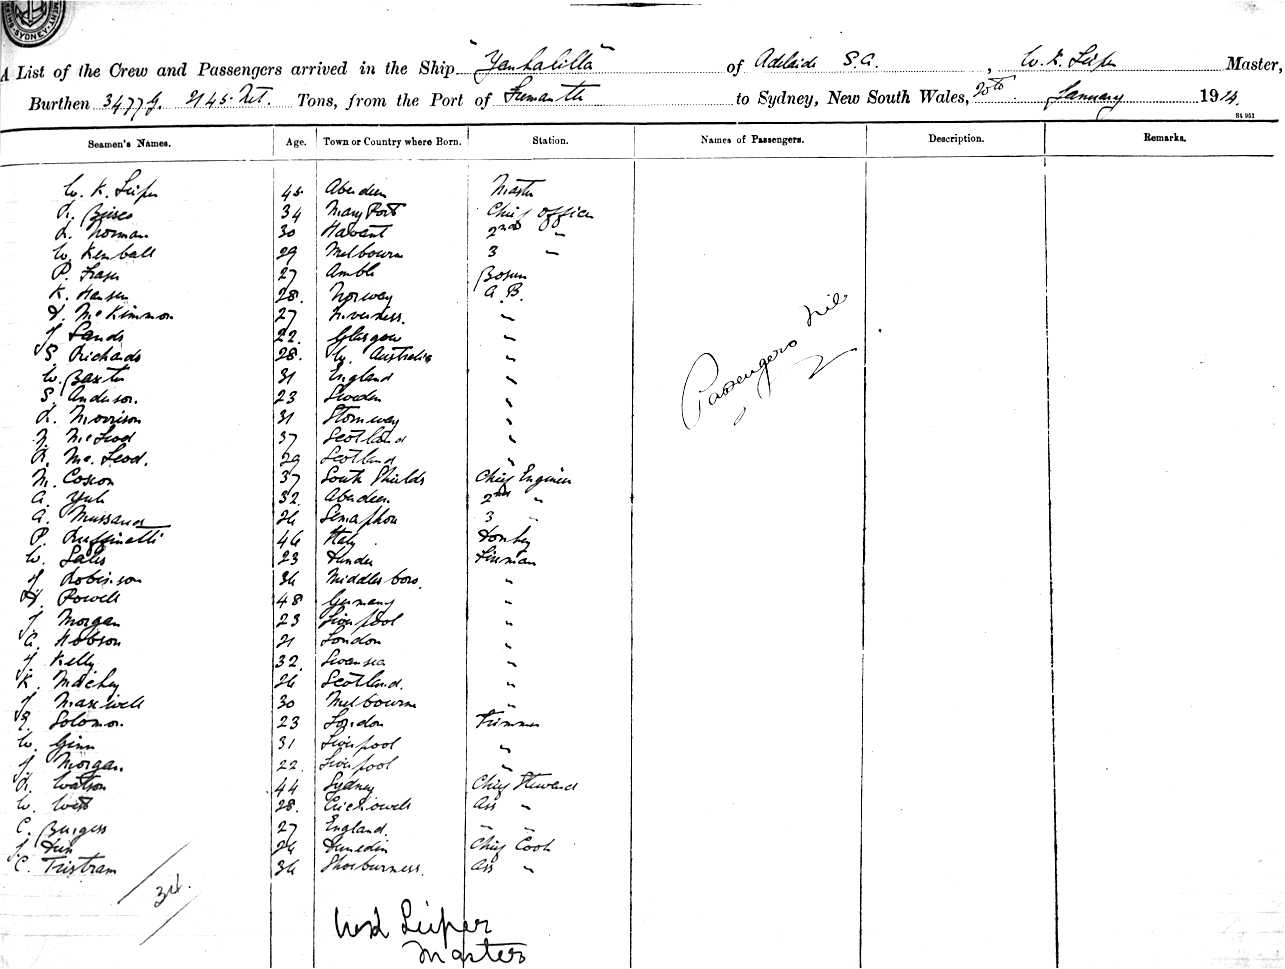 SYDNEY
A List of the Crew and Passengers arrived in the Ship "Yankalilla" of Adelaide S.A., W. K. Leiper Master,
Burthen 3477 G. 2145 Net. Tons, from the Port of Fremantle to Sydney, New South Wales, 20th January 1914.
St 951
Seamen's Names. Age. Town or Country where Born. Station. Names of Passengers. Description. Remarks.
W. K. Leiper 45 Aberdeen Master
34 Mary Port Chief Officer
Norman 30 Havant 2nd "
W. Kemball 29 Melbourne 3 "
P. Fraser 27 Amble Bosun
K. Hansen 28. Norway A.B.
McKimmon 27 Inverness. "
J Sands 22. Glasgow "
S. Richards 28. W. Australia "
W. Baxter 31 England "
S. Anderson. 23 Sweden "
Morrison 31 Stornway "
McLeod 37 Scotland "
Mc. Leod. 29 Scotland "
M. Coxon 37 South Shields Chief Engineer
A. Yule 32. Aberdeen 2nd "
A. 26 Semaphore 3 "
P. Ruffinatti 46 Italy Donkey
W. 23 Dundee Fireman
J Robinson 36 Middlesboro. "
H. Powell 48 Germany "
J Morgan 23 Liverpool "
A. Hobson 21 London "
J Kelly 32. Swansea "
K. 26 Scotland. "
J Maxwell 30 Melbourne "
Solomon. 23 London Trimmer
W. Ginn 31 Liverpool "
J Morgan. 22. Liverpool "
Watson 44 Sydney Chief Steward
W. West 28. Ass "
C. Burgess 27 England. " "
Dunedin Chief Cook
C. Tristram 36 Shoeburness. Ass "
Passengers Nil
34.
Leiper
Master